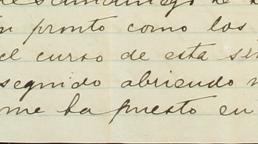 n pronto como los
el curso de esta se
seguido abriendo
me ha puesto en